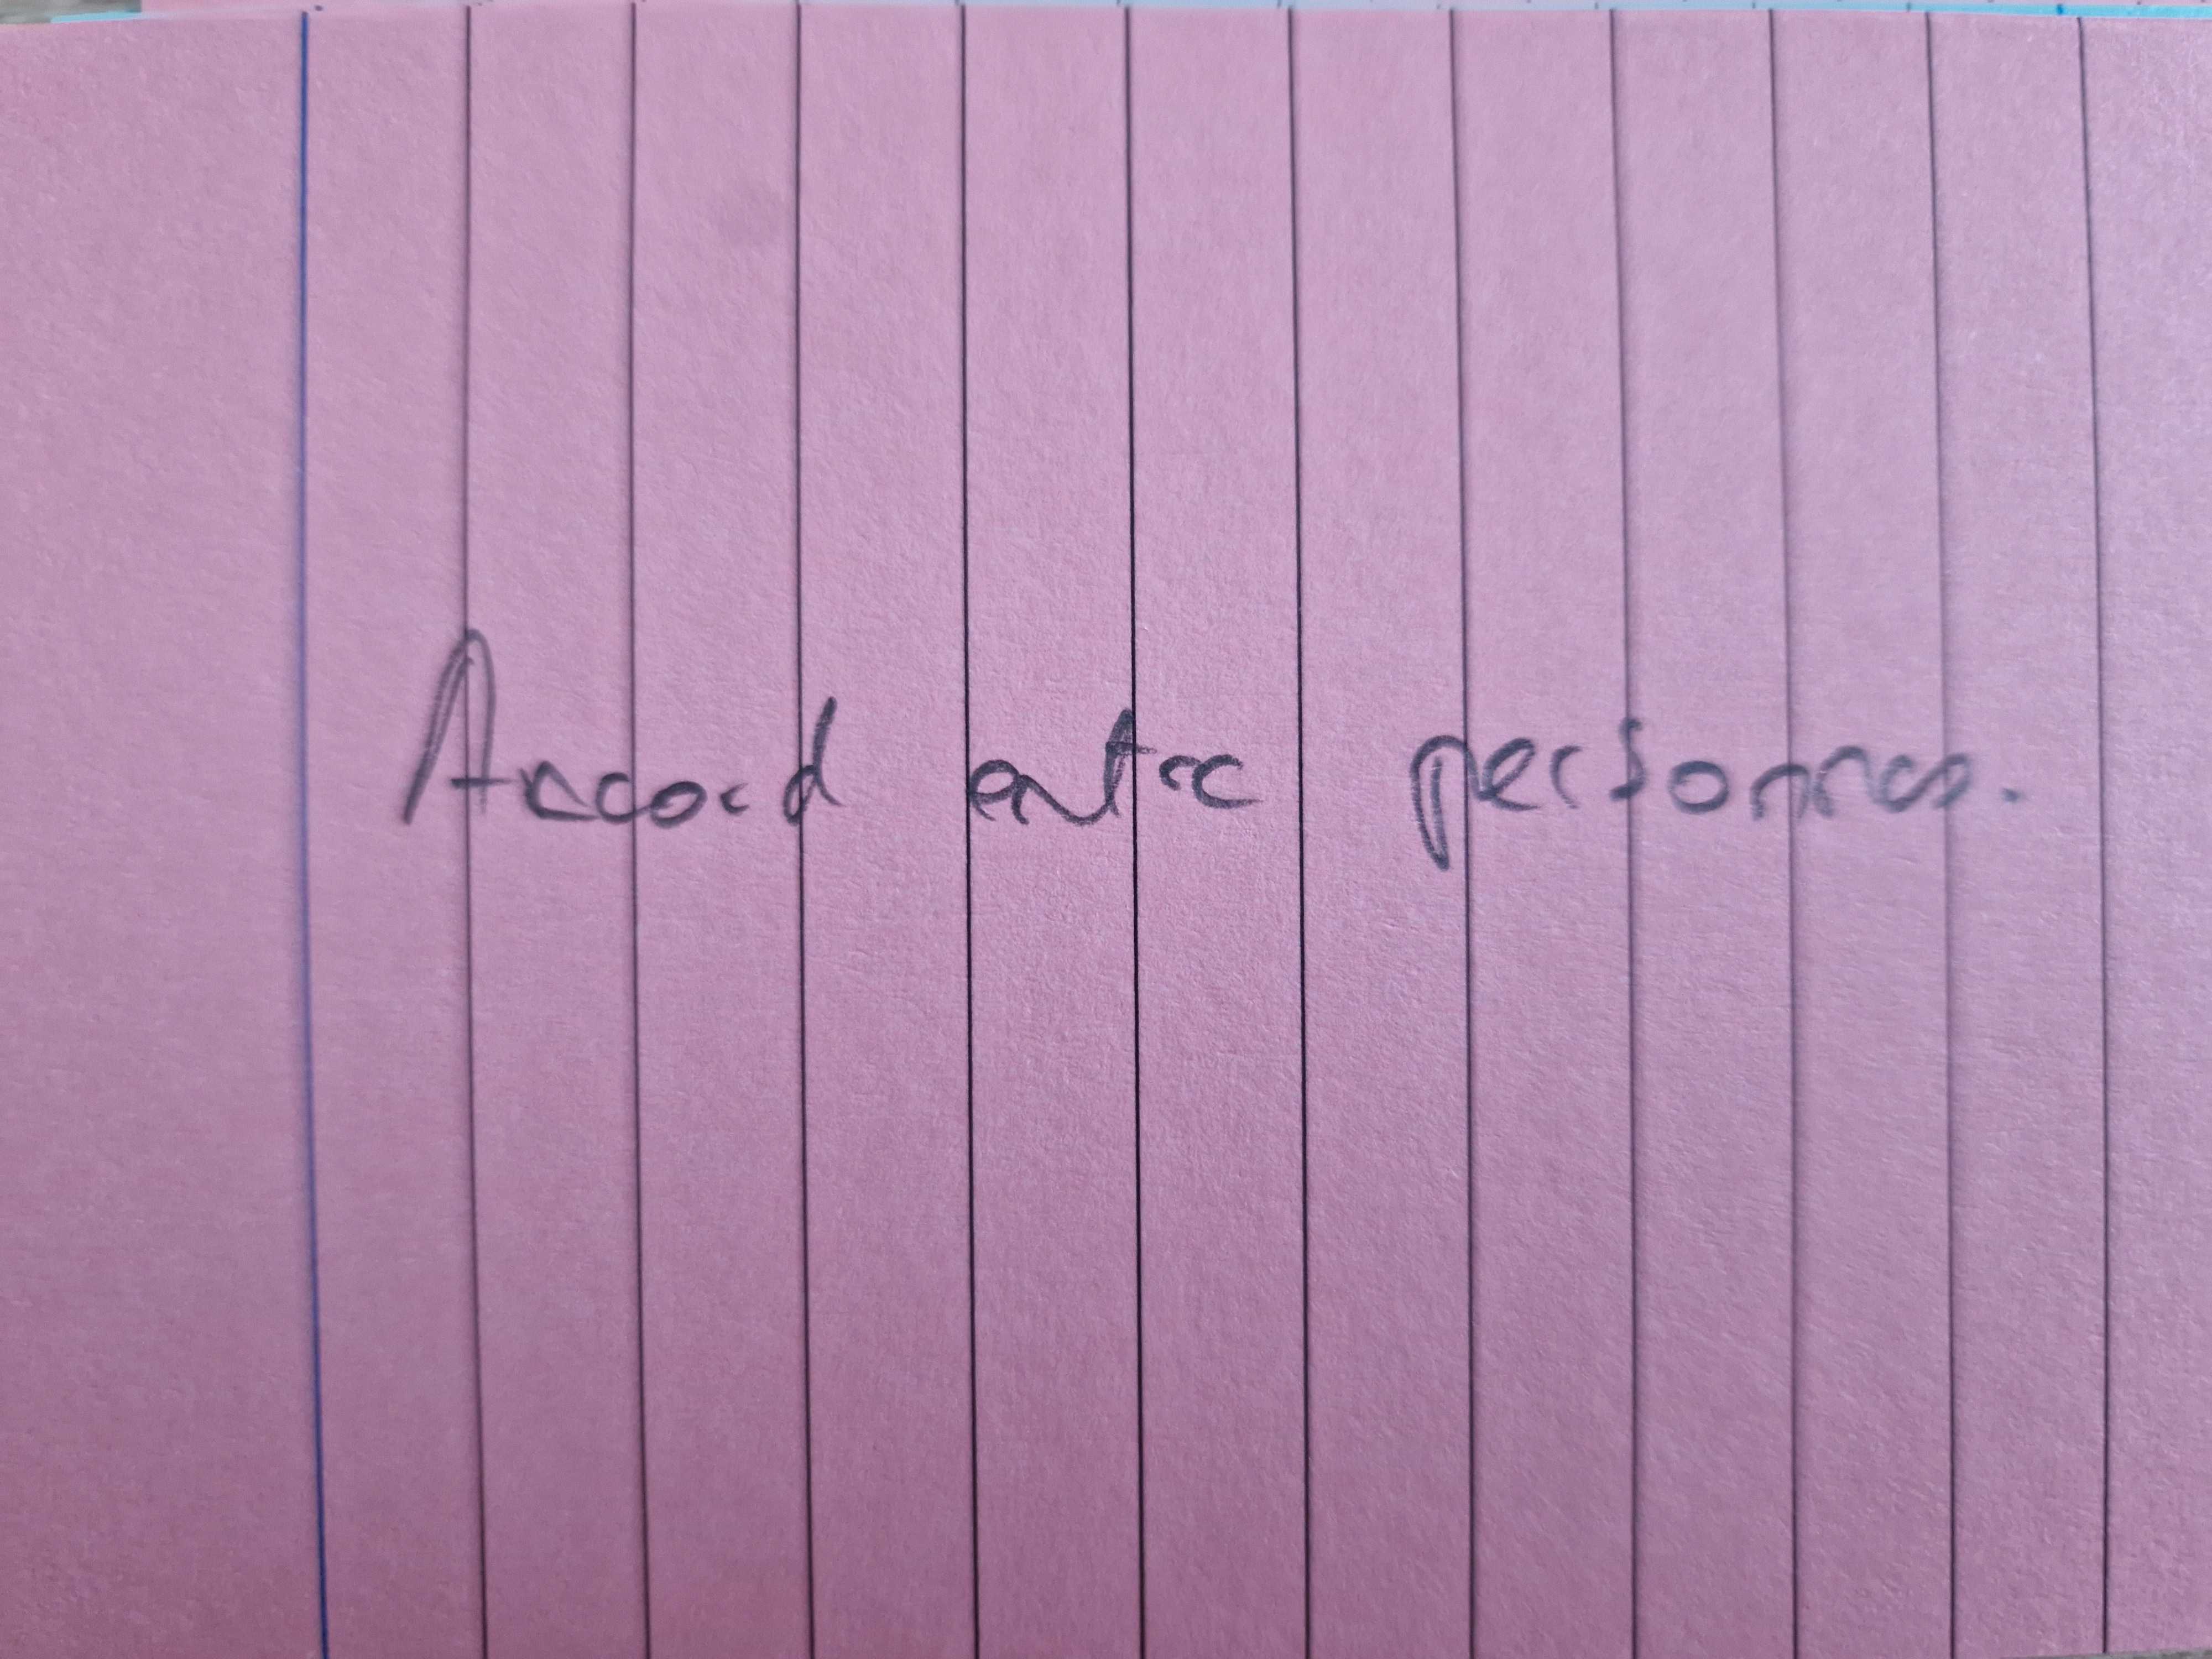 Accord entre personnes.